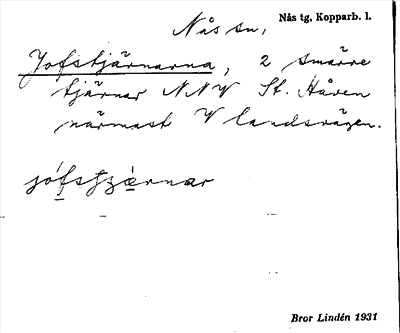 Nås sn,
Nås tg, Kopparb. l.
Jofstjärnarna, 2 smärre
tjärnar NNV St. Håven
närmast V landsvägen.
Bror Lindén 1931